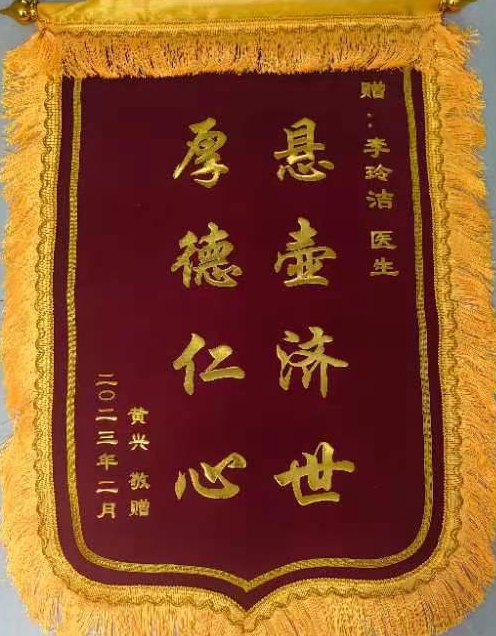 赠：李玲洁 医生
悬壶济世
厚德仁心
黄兴 敬赠
二〇二三年二月